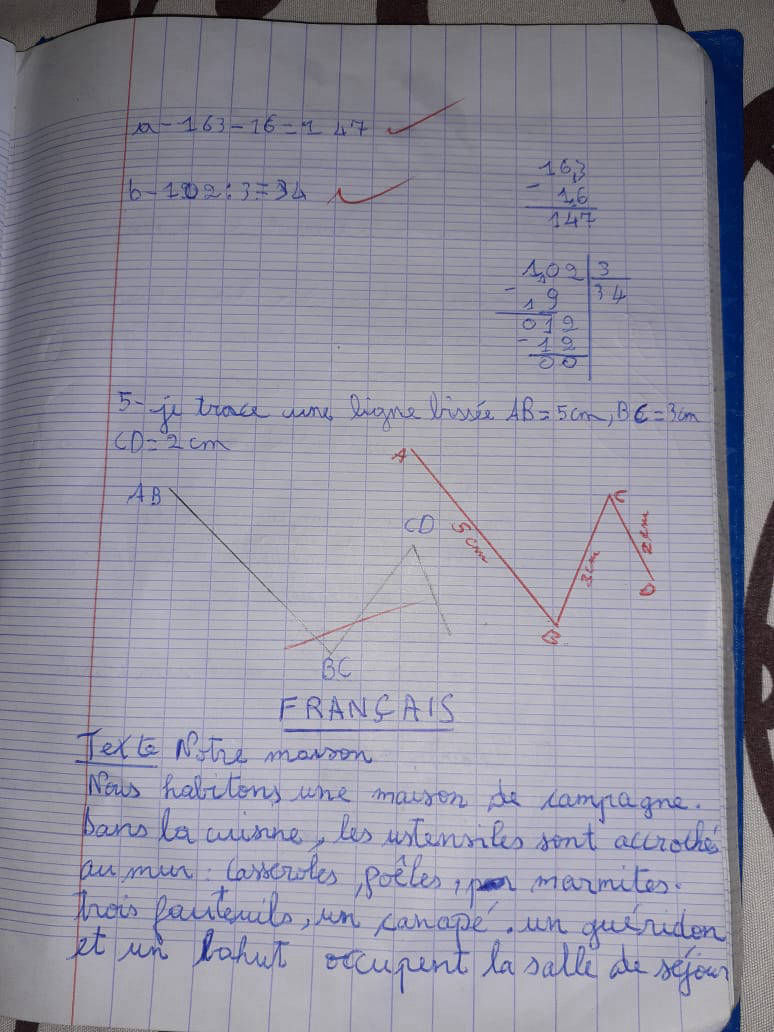 a-163-16=147
b-102:3=34
163
- 16
147
102 3
- 19 34
012
-12
00
5- je trace une ligne bissée AB=5cm, BC=3cm
CD=2cm
A
AB
CD
C
5cm
3cm
2cm
D
B
BC
FRANÇAIS
Texte Notre maison
Nous habitons une maison de campagne.
Dans la cuisine, les ustensiles sont accrochés
au mur : casseroles, poêles, marmites.
trois fauteuils, un canapé. un guéridon
et un bahut occupent la salle de séjour